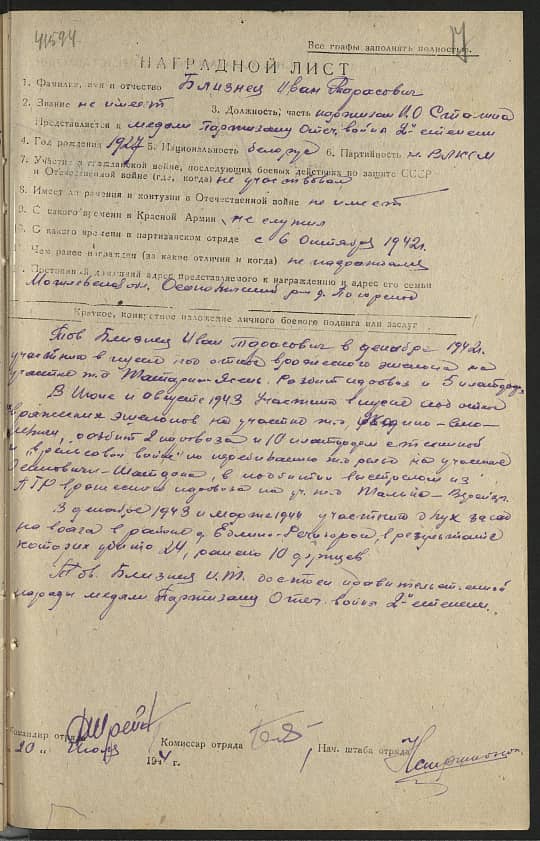 41594
Все графы заполнять полностью.
НАГРАДНОЙ ЛИСТ
1. Фамилия, имя и отчество Близнец Иван Тарасович
2. Звание не имеет 3. Должность, часть партизан П.О Сталина
Представляется к медали Партизану Отеч. война 2ой степени
4. Год рождения 1927 5. Национальность белорус 6. Партийность чл. ВЛКСМ
7. Участие в гражданской войне, последующих боевых действиях по защите СССР
и Отечественной войне (где, когда) не участвовал
8. Имеет ли ранения и контузии в Отечественной войне не имеет
9. С какого времени в Красной Армии не служил
10. С какого времени в партизанском отряде с 6 Октября 1942г.
Чем ранее награжден (за какие отличия и когда) не награждался
Постоянный домашний адрес представляемого к награждению и адрес его семьи
Могилевской обл. Осиповичский р-н д.
Краткое, конкретное изложение личного боевого подвига или заслуг
Тов Близнец Иван Тарасович в декабре 1942г.
участвовал в спуске под откос вражеского эшелона на
участке ж.д Татарка-Ясень. Разбит паровоз и 5 платформ
В Июне и августе 1943 участвовал в спуске под откос
вражеских эшелонов на участке ж.д
разбит 2 паровоза и 10 платформ с техникой
и "в рельсовой войне" по перебиванию ж.д рельс на участке
Осиповичи-Шатдона, в подбитии выстрелом из
ПТР вражеского паровоза на уч. ж.д Талька-
В декабре 1943 и марте 1944 участник двух засад
на врага в районе д. в результате
которых убито 24, ранено 10 фрицев
Тов. Близнец И.Т. достоен правительственной
награды медали Партизану Отеч. война 2ой степени.
Командир отряда
Комиссар отряда
Нач. штаба отряда
"20" Июля 1944 г.